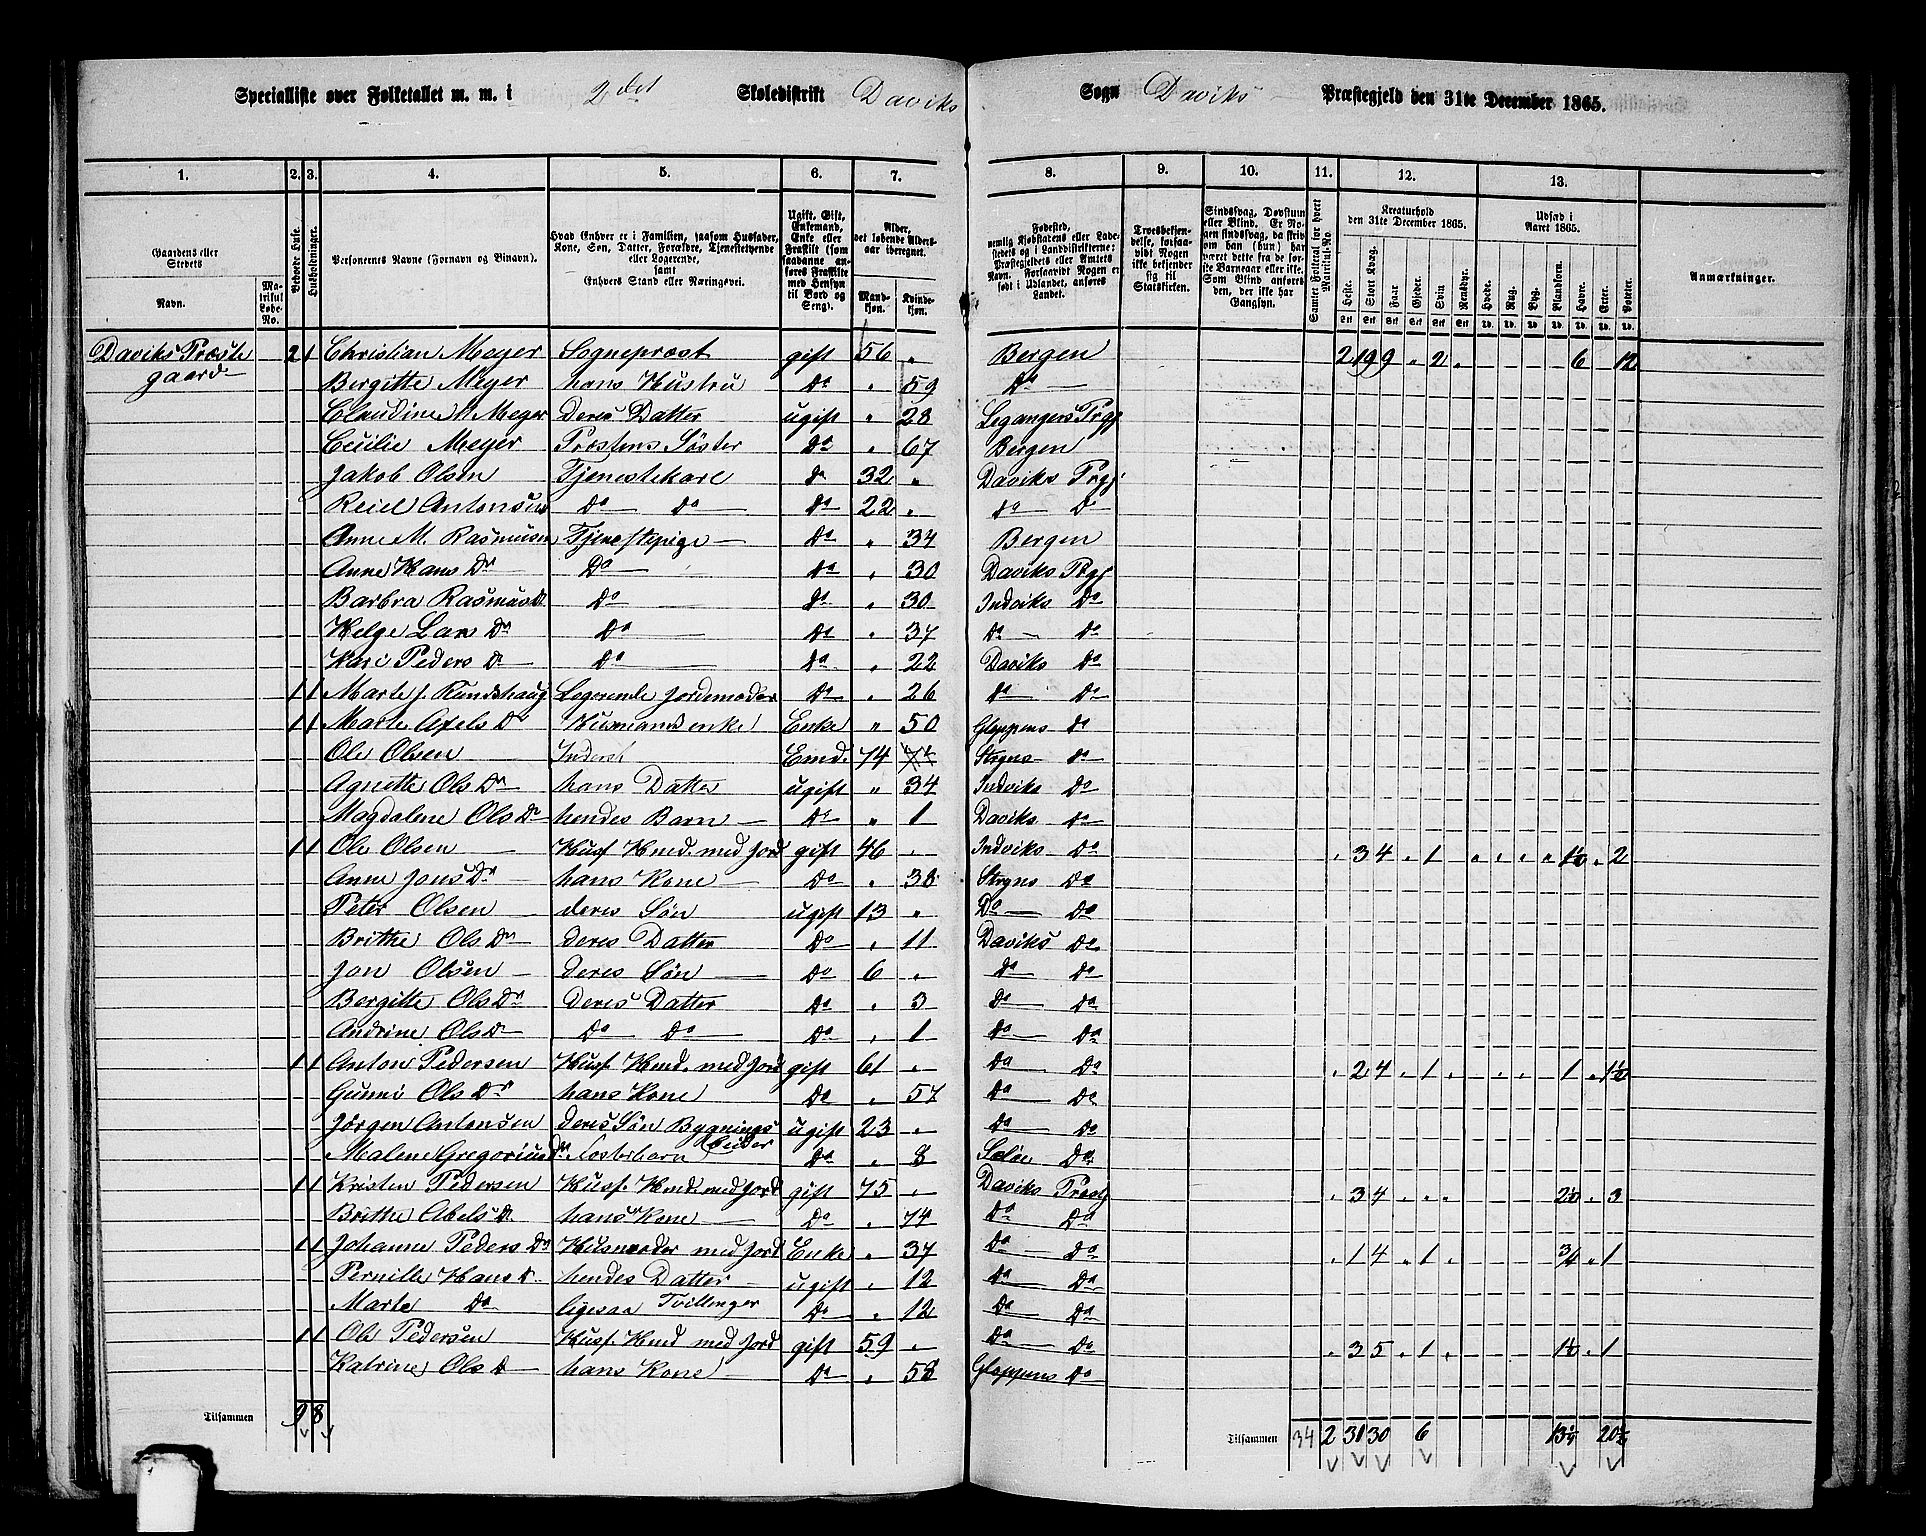 Specialliste over Folketallet m. m. i 2det Skoledistrikt Daviks Sogn Daviks Præstegjeld den 31te December 1865.
1. 2. 3. 4. 5. 6. 7. 8. 9. 10. 11. 12. 13.
Gaardens eller Stedets
Navn.
Matrikul Løbe-No.
Beboede Huse.
Husholdninger.
Personernes Navne (Fornavn og Binavn).
Hvad Enhver er i Familien, saasom Husfader, Kone, Søn, Datter, Forældre, Tjenestetyende eller Logerende, samt Enhvers Stand eller Næringsvei.
Ugift, Gift, Enkemand, Enke eller Fraskilt (som saadanne anføres Fraskilte med Hensyn til Bord og Seng).
Alder, det løbende Aldersaar iberegnet.
Mandkjøn. Kvindekjøn.
Fødested, nemlig Kjøbstadens eller Ladestedets og i Landdistrikterne: Præstegjeldets eller Amtets Navn. Forsaavidt Nogen er født i Udlandet, anføres Landet.
Troesbekjendelse, forsaavidt Nogen ikke bekjender sig til Statskirken.
Sindssvag, Døvstum eller Blind. Er Nogen sindssvag, da skrives om han (hun) har været dette fra de første Barneaar eller ikke. Som Blind anføres den, der ikke har Gangsyn.
Samlet Folketal for hvert Matrikul-No.
Kreaturhold den 31te December 1865.
Heste. Stort Kvæg. Faar. Gjeder. Svin Rensdyr.
Udsæd i Aaret 1865.
Hvede. Rug. Byg. Blandkorn. Havre. Erter. Poteter.
Anmærkninger.
Daviks Præste 2 1 Christian Meyer Sognepræst gift 56 " Bergen 2 19 9 " 2 " 6 12
gaard Bergitte Meyer hans Hustru Do " 59 Do
Claudine M Meyer Deres Datter ugift " 28 Legangers Prgj
Cecilie Meyer Præstens Søster Do " 67 Bergen
Jakob Olsen Tjenestekarl do 32 " Daviks Prgj
Reiel Antonsen Do Do Do 22 " do Do
Anne M. Rasmusen Tjenestepige Do " 34 Bergen
Anne Hans Dr Do Do " 30 Daviks Prgj
Barbra Rasmusd Do Do " 30 Indviks Do
Helge Lars Dr Do Do " 37 Do Do
Kari Peders D Do Do " 22 Daviks Do
1 1 Marte J. Logerende Jordemoder Do " 26 Do Do
1 1 Marte Axels Dr Husmandsenke Enke " 50 Gloppens Do
Ole Olsen Inderst Emd. 74 Stryns Do
Agnette Ols Dr hans Datter ugift " 34 Indviks Do
Magdalene Ols Dr hendes Barn Do " 1 Daviks Do
1 1 Ole Olsen Husf. Hmd. med Jord gift 46 " Indviks Do " 3 4 " 1 " " " " 1½ " 2
Anne Jons Dr hans Kone Do " 38 Stryns Do
Peter Olsen deres Søn ugift 13 " Do Do
Brithe Ols Dr deres Datter Do " 11 Daviks Do
Jon Olsen deres Søn Do 6 " Do Do
Bergitte Ols Dr deres Datter Do " 3 Do Do
Andrine Ols D Do Do Do " 1 Do Do
1 1 Anton Pedersen Husf. Hmd. med Jord gift 61 " Do Do " 2 4 " 1 " " " 1 " 1½
Gunni Ols Dr hans Kone Do " 57 Do Do
Jørgen Antonsen deres Søn Bygnings ugift 23 " Do Do
Malene Gregorius Dr Fosterbarn Do " 8 Seløe Do
1 1 Kristen Pedersen Husf. Hmd. med Jord gift 75 " Daviks Prestg " 3 4 " " " 2½ " 3
Brithe Abels D hans Kone Do " 74 Do Do
1 1 Johanne Peders Dr Husmoder med Jord Enke " 37 Do Do " 1 4 " 1 " ¾ " 1
Pernille Hans D hendes Datter ugift " 12 Do Do
Marte Do ligesaa Tvillinger Do " 12 Do Do
1 1 Ole Pedersen Husf. Hmd med Jord gift 59 " Do Do " 3 5 " 1 " 1½ " 1
Katrine Ols D hans Kone Do " 58 Gloppens Do
Tilsammen 9 8 Tilsammen 34 2 31 30 6 13¼ 20½